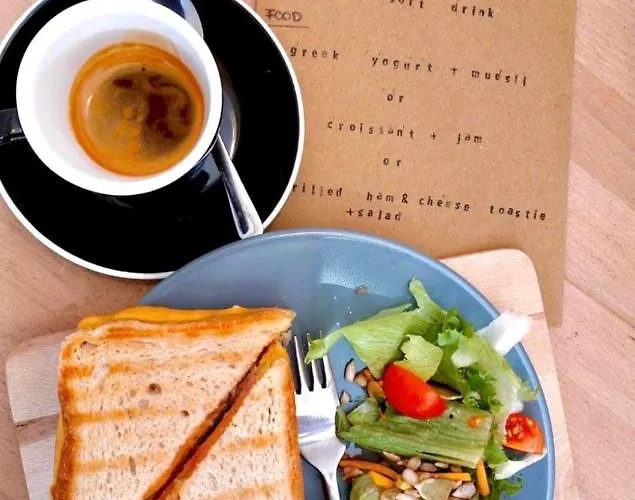 soft drink
FOOD
greek yogurt + muesli
or
croissant + jam
or
grilled ham & cheese toastie
+ salad